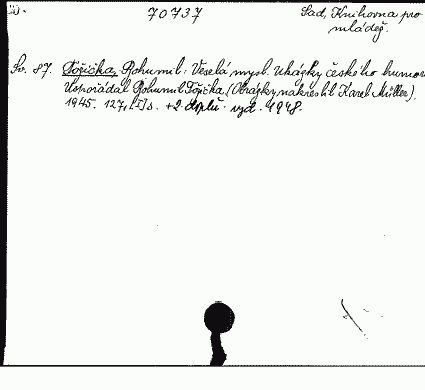 70737 Sad, Knihovna pro
mládež.
Sv. 87. Tožička, Bohumil: Veselá mysl. Ukázky českého humoru
Uspořádal Bohumil Tožička. (Obrázky nakreslil Karel Müller).
1945. 127, [I] s. +2 doplň. vyd. 1948.